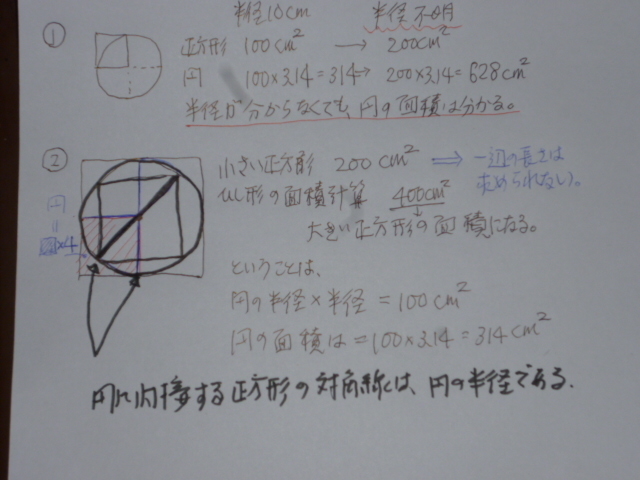 半径10cm 半径不明
① 正方形 100cm² → 200cm²
円 100×3.14=314→ 200×3.14=628cm²
半径が分からなくても、円の面積は分かる。
② 小さい正方形 200cm² ⇒ 一辺の長さは
求められない。
ひし形の面積計算 400cm²
大きい正方形の面積になる。
円
=
×4
ということは、
円の半径×半径 = 100cm²
円の面積は = 100×3.14 = 314cm²
円に内接する正方形の対角線は、円の半径である。